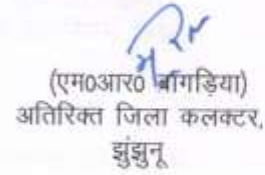 (एम0आर0 बॉगड़िया)
अतिरिक्त जिला कलक्टर,
झुंझुनू